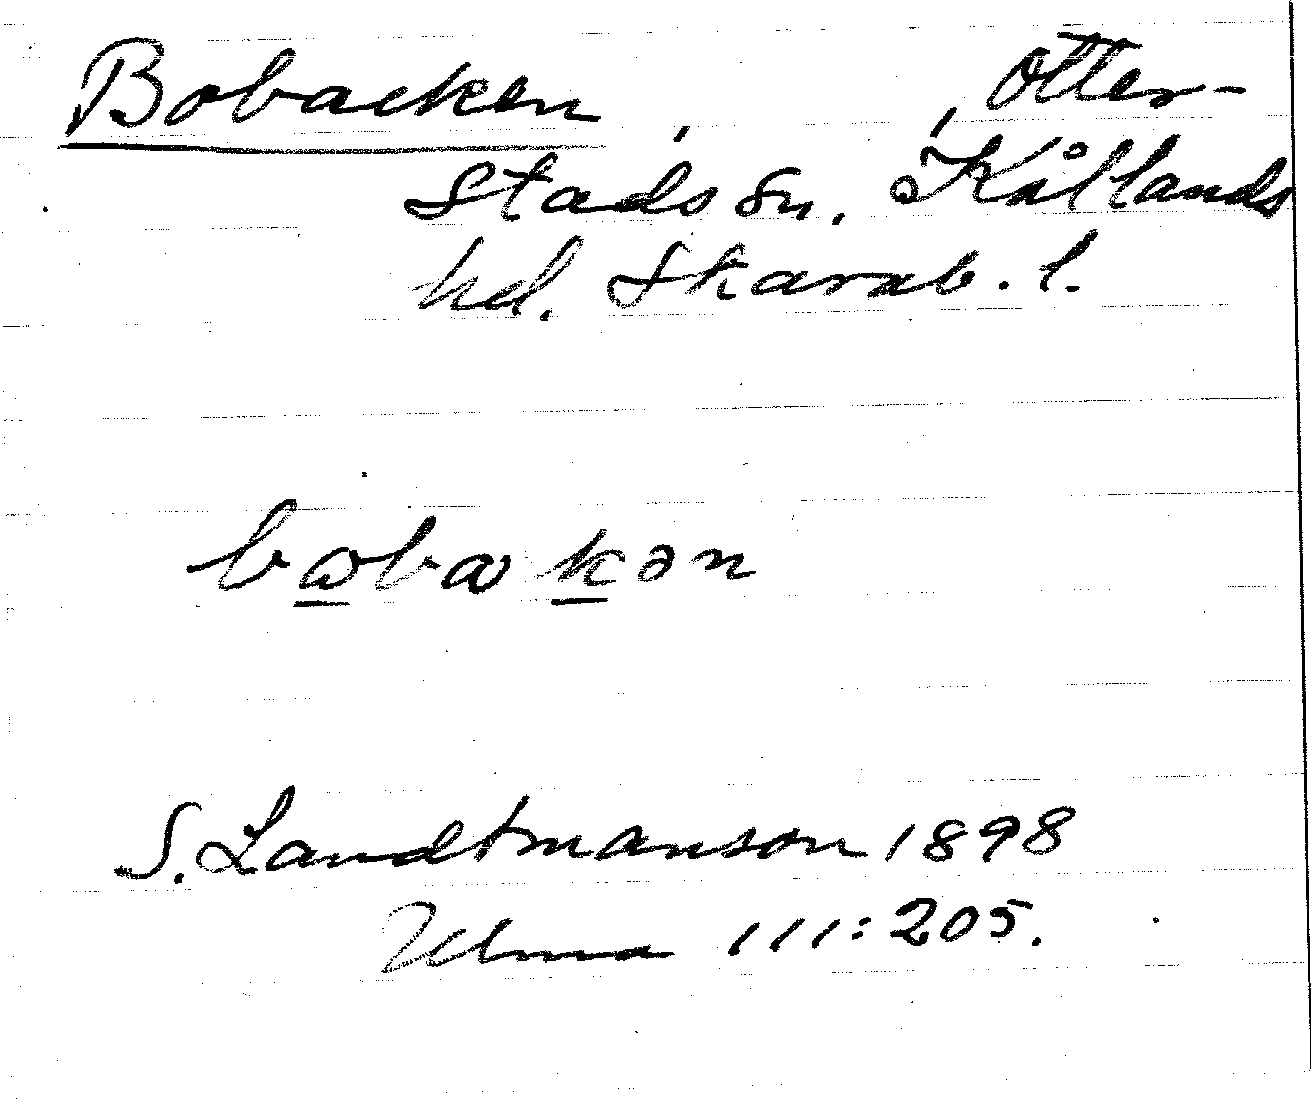 Bobacken, , Otter-
stads sn. Kållands
hd. Skarab. l.
bωbakən
S. Landtmanson 1898
Ulma 111:205.